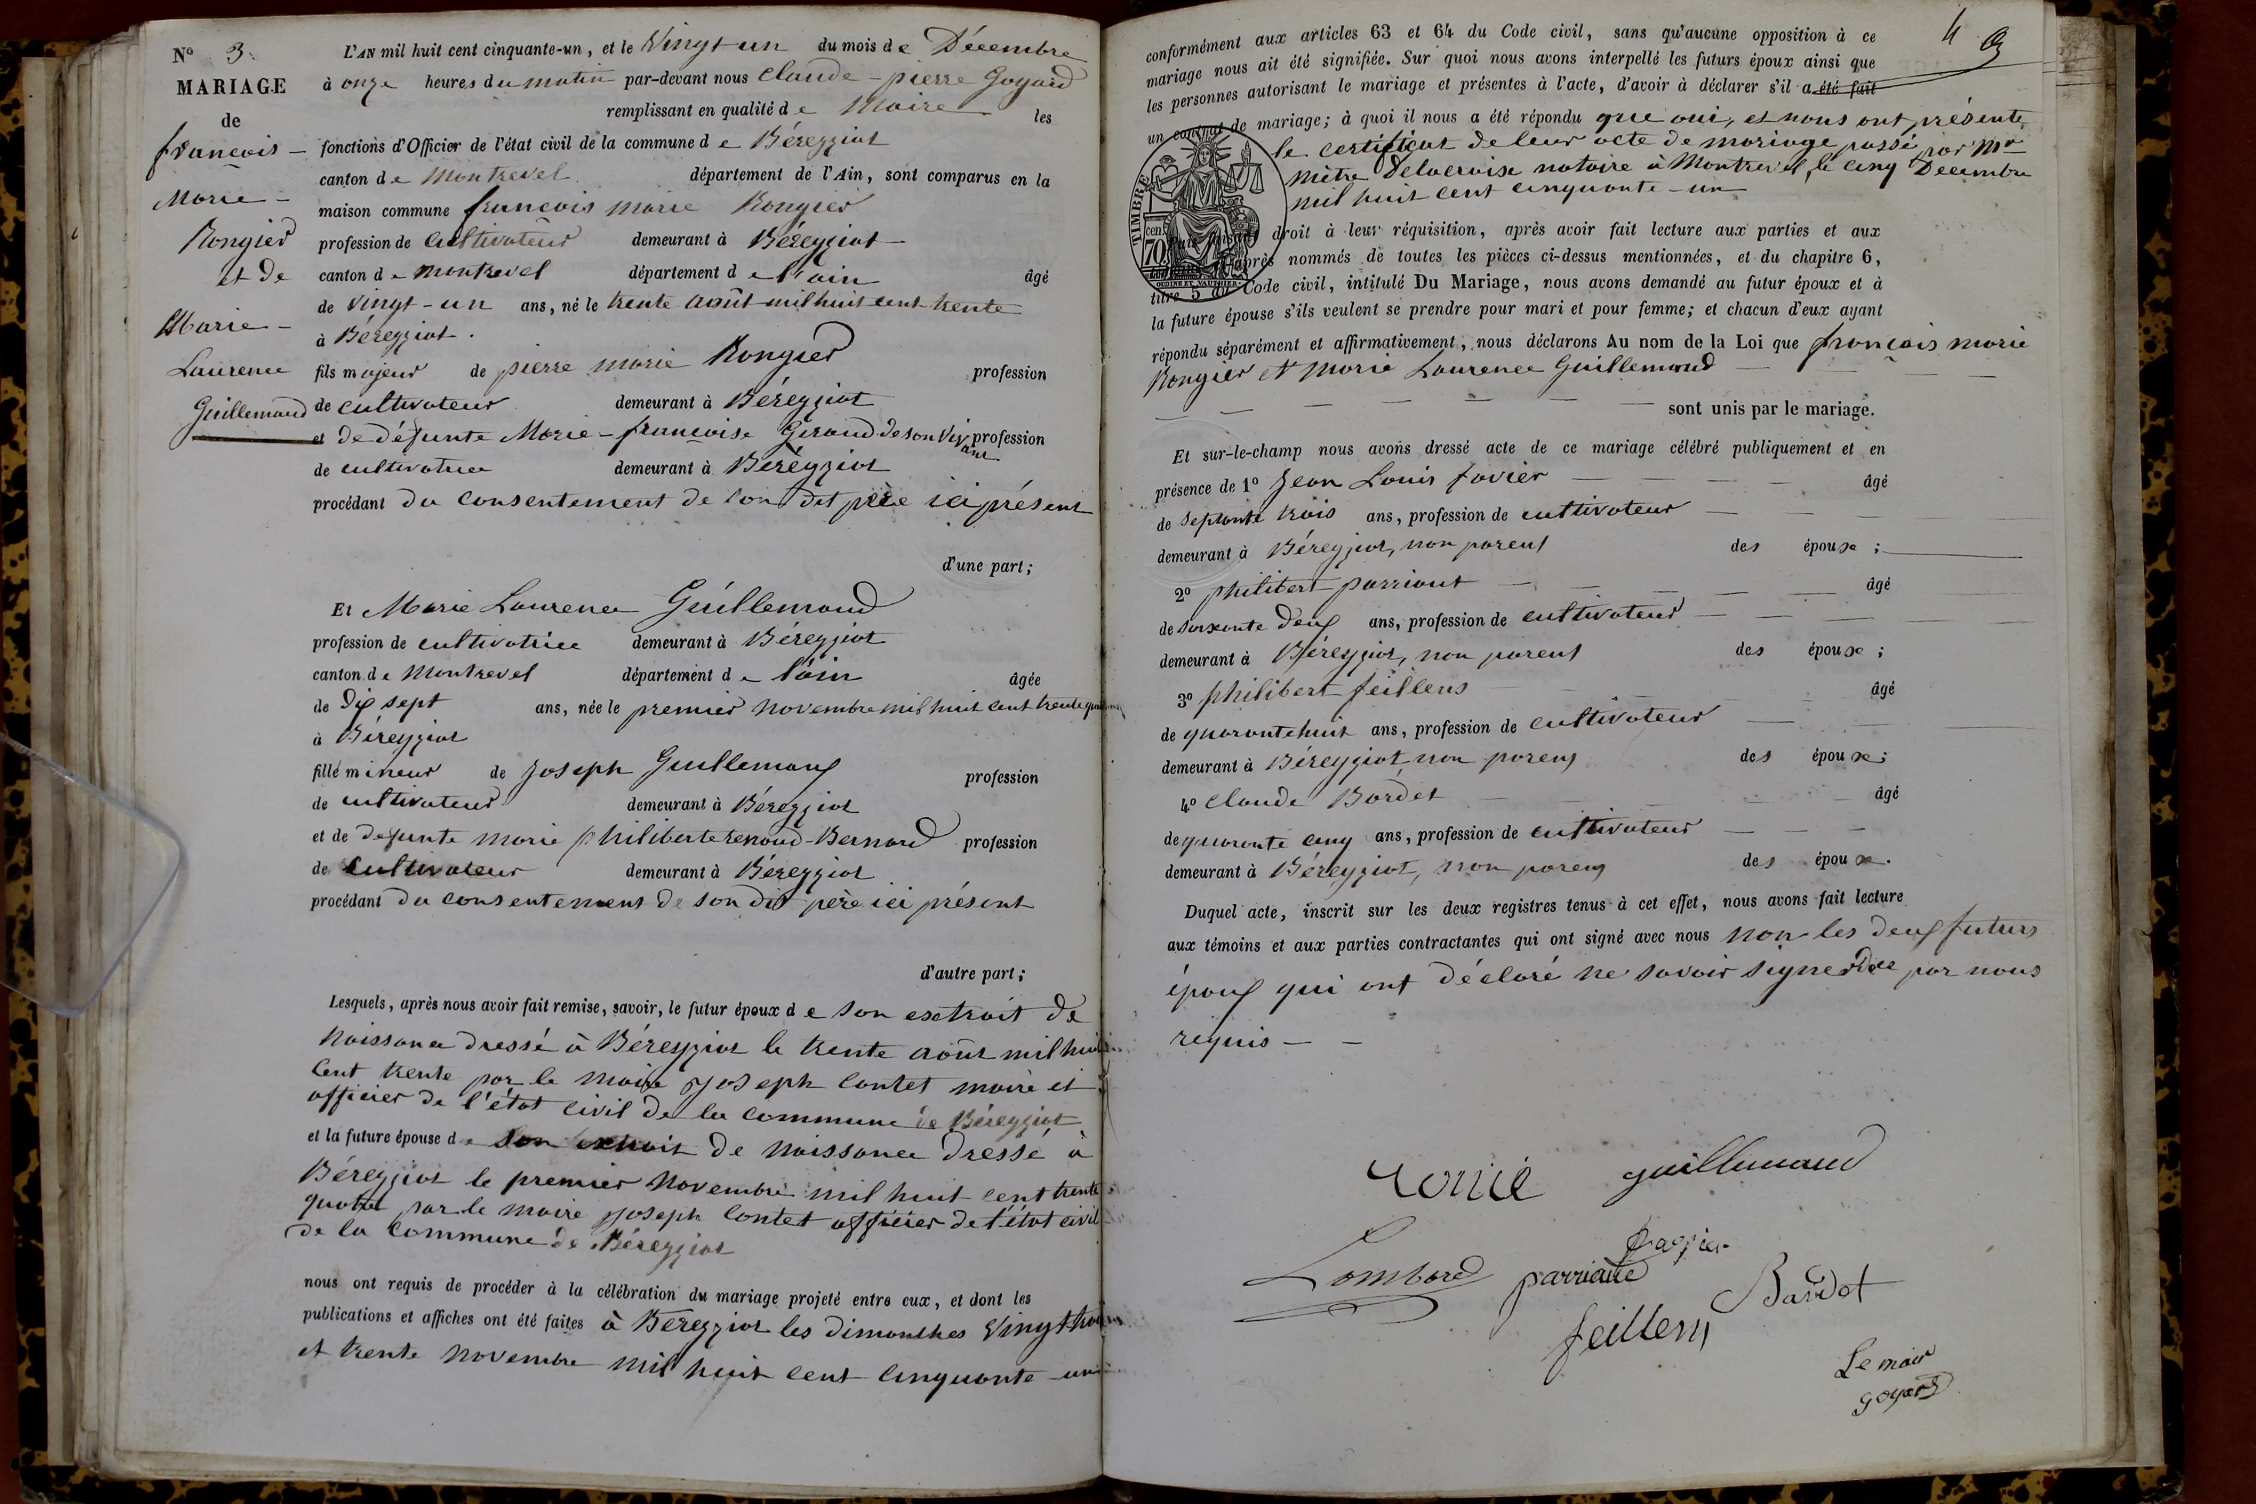 N° 3.
MARIAGE
de
francois –
Marie –
Rongier
et de
Marie –
Laurence
Guillemaud
L'AN mil huit cent cinquante-un, et le Vingt un du mois de Décembre
à onze heures du matin par-devant nous Claude – pierre Goyard
remplissant en qualité de Maire les
fonctions d'Officier de l'état civil de la commune de Béreyziat
canton de Montrevel département de l'Ain, sont comparus en la
maison commune francois marie Rongier
profession de Cultivateur demeurant à Béreyziat –
canton de Montrevel département de l'ain âgé
de Vingt – un ans, né le trente août mil huit cent trente
à Béreyziat.
fils majeur de pierre marie Rongier profession
de cultivateur demeurant à Béréyziat
et de défunte Marie – francoise Geraud de son vivant profession
de cultivatrice demeurant à Béréyziat
procédant du consentement de son dit père ici présent
d'une part;
Et Marie Laurence Guillemaud
profession de cultivatrice demeurant à Béreyziat
canton de Montrevel département de l'ain âgée
de Dix sept ans, née le premier novembre mil huit cent trente
à Béreyziat
fille mineur de Joseph Guillemaud profession
de cultivateur demeurant à Béreyziat
et de defunte marie philiberte renoud-Bernard profession
de cultivateur demeurant à Béreyziat
procédant du consentement de son dit père ici présent
d'autre part;
Lesquels, après nous avoir fait remise, savoir, le futur époux de son extrait de
Naissance dressé à Béreyziat le trente août mil huit
Cent trente par le Maire Joseph Contet maire et
officier de l'état civil de la commune de Béreyziat
et la future épouse de son extrait de Naissance dressé à
Béreyziat le premier Novembre mil huit cent trente
quatre par le maire Joseph Contet officier de l'état civil
de la Commune de Béreyziat
nous ont requis de procéder à la célébration du mariage projeté entre eux, et dont les
publications et affiches ont été faites à Béreyziat les dimanches Vingt trois
et trente novembre mil huit cent cinquante – un
4
conformément aux articles 63 et 64 du Code civil, sans qu'aucune opposition à ce
mariage nous ait été signifiée. Sur quoi nous avons interpellé les futurs époux ainsi que
les personnes autorisant le mariage et présentes à l'acte, d'avoir à déclarer s'il a été fait
un contrat de mariage; à quoi il nous a été répondu que oui, et nous ont présenté
le certificat de leur acte de mariage passé par Mr
mètre Delacroise notaire à Montrevel, le cinq Decembre
mil huit cent cinquante – un
TIMBRE
70 cent
droit à leur réquisition, après avoir fait lecture aux parties et aux
après nommés de toutes les pièces ci-dessus mentionnées, et du chapitre 6,
titre 5 du Code civil, intitulé Du Mariage, nous avons demandé au futur époux et à
la future épouse s'ils veulent se prendre pour mari et pour femme; et chacun d'eux ayant
répondu séparément et affirmativement, nous déclarons Au nom de la Loi que francois marie
Rongier et Marie Laurence Guillemaud
sont unis par le mariage.
Et sur-le-champ nous avons dressé acte de ce mariage célébré publiquement et en
présence de 1° Jean Louis favier âgé
de septante trois ans, profession de cultivateur
demeurant à Béreyziat, non parent des époux;
2° philibert parriaut âgé
de soixante deux ans, profession de cultivateur
demeurant à Béreyziat, non parent des époux;
3° philibert feillens âgé
de quarante huit ans, profession de cultivateur
demeurant à Béreyziat non parens des époux;
4° Claude Bordet âgé
de quarante cinq ans, profession de cultivateur
demeurant à Béreyziat, non parens des époux.
Duquel acte, inscrit sur les deux registres tenus à cet effet, nous avons fait lecture
aux témoins et aux parties contractantes qui ont signé avec nous non les deux futurs
époux qui ont déclaré ne savoir signer de ce par nous
requis –
guillemaud
Lombard
parriaut
Bardet
feillens
Le maire
goyard